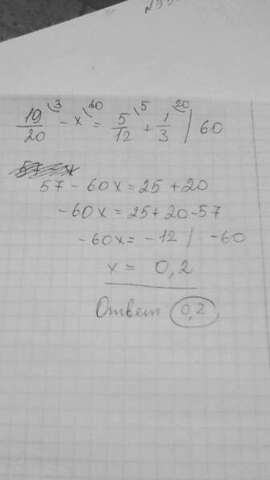 19/20 ⁽³ - x ⁽⁶⁰ = 5/12 ⁽⁵ + 1/3 ⁽²⁰ | 60
57 - 60x = 25 + 20
-60x = 25 + 20 - 57
-60x = -12 | -60
x = 0,2
Ответ 0,2